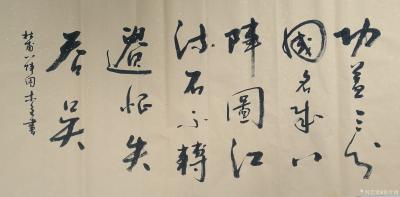 功盖三分
國名成八
陣圖江
流石不轉
遺恨失
吞吴
杜甫八陣图